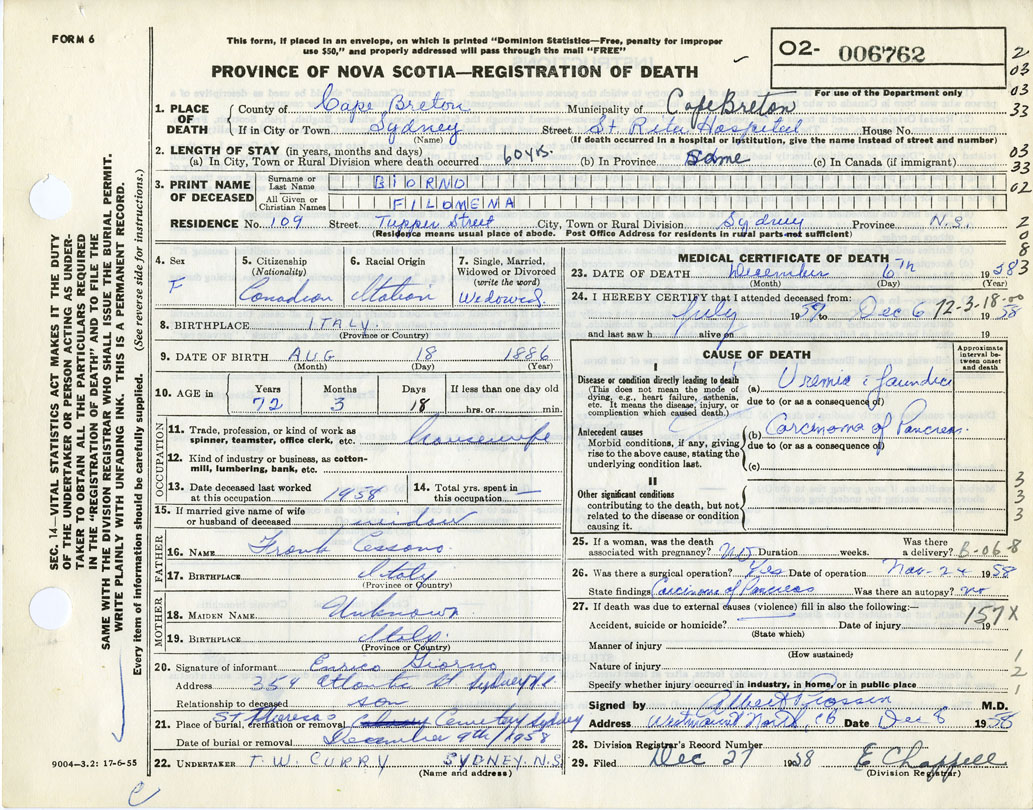 FORM 6
This form, if placed in an envelope, on which is printed "Dominion Statistics—Free, penalty for improper
use $50," and properly addressed will pass through the mail "FREE"
O2- 006762
PROVINCE OF NOVA SCOTIA—REGISTRATION OF DEATH
For use of the Department only
2
03
33
03
33
02
2
0
8
2
1. PLACE OF DEATH
County of Cape Breton Municipality of Cape Breton
If in City or Town Sydney Street St Rita Hospital House No.
(Name) (If death occurred in a hospital or institution, give the name instead of street and number)
2. LENGTH OF STAY (in years, months and days)
(a) In City, Town or Rural Division where death occurred 60 yrs. (b) In Province Same (c) In Canada (if immigrant)
3. PRINT NAME OF DECEASED
Surname or Last Name
All Given or Christian Names FILOMENA
RESIDENCE No. 109 Street Tupper Street City, Town or Rural Division Sydney Province N.S.
(Residence means usual place of abode. Post Office Address for residents in rural parts not sufficient)
4. Sex F
5. Citizenship (Nationality) Canadian
6. Racial Origin Italian
7. Single, Married, Widowed or Divorced (write the word) Widowed
8. BIRTHPLACE ITALY
(Province or Country)
9. DATE OF BIRTH AUG 18 1886
(Month) (Day) (Year)
10. AGE in Years 72 Months 3 Days 18 If less than one day old hrs. or min.
OCCUPATION
11. Trade, profession, or kind of work as spinner, teamster, office clerk, etc. housewife
12. Kind of industry or business, as cotton-mill, lumbering, bank, etc.
13. Date deceased last worked at this occupation 1958
14. Total yrs. spent in this occupation —
15. If married give name of wife or husband of deceased widow
FATHER
16. NAME Frank Cessano
17. BIRTHPLACE Italy
(Province or Country)
MOTHER
18. MAIDEN NAME Unknown
19. BIRTHPLACE Italy
(Province or Country)
20. Signature of informant Enrico Giorno
Address 359 Atlantic St Sydney N.S.
Relationship to deceased son
21. Place of burial, cremation or removal St Theresas Cemetery Sydney
Date of burial or removal December 9th/1958
22. UNDERTAKER T. W. CURRY SYDNEY. N.S
(Name and address)
MEDICAL CERTIFICATE OF DEATH
23. DATE OF DEATH December 6th 1958
(Month) (Day) (Year)
24. I HEREBY CERTIFY that I attended deceased from:
July 1957 to Dec 6 1958
72-3-18-00
and last saw h alive on 19
CAUSE OF DEATH
Approximate interval between onset and death
I
Disease or condition directly leading to death
(This does not mean the mode of dying, e.g., heart failure, asthenia, etc. It means the disease, injury, or complication which caused death.)
(a) Uremia & Jaundice
due to (or as a consequence of)
Antecedent causes
Morbid conditions, if any, giving rise to the above cause, stating the underlying condition last.
(b) Carcinoma of Pancreas.
due to (or as a consequence of)
(c)
II
Other significant conditions contributing to the death, but not related to the disease or condition causing it.
3
3
3
3
25. If a woman, was the death associated with pregnancy? No Duration weeks. Was there a delivery? B-06-8
26. Was there a surgical operation? Yes Date of operation Nov-24 1958
State findings Carcinoma of Pancreas Was there an autopsy? no
27. If death was due to external causes (violence) fill in also the following:—
157X
Accident, suicide or homicide? Date of injury 19
(State which)
Manner of injury
(How sustained)
Nature of injury
Specify whether injury occurred in industry, in home, or in public place
1
2
1
Signed by Albert Prossin M.D.
Address Westmount North, CB Date Dec 8 1958
28. Division Registrar's Record Number
29. Filed Dec 27 1958 E Chappell
(Division Registrar)
SEC. 14—VITAL STATISTICS ACT MAKES IT THE DUTY
OF THE UNDERTAKER OR PERSON ACTING AS UNDER-
TAKER TO OBTAIN ALL THE PARTICULARS REQUIRED
IN THE "REGISTRATION OF DEATH" AND TO FILE THE
SAME WITH THE DIVISION REGISTRAR WHO SHALL ISSUE THE BURIAL PERMIT.
WRITE PLAINLY WITH UNFADING INK. THIS IS A PERMANENT RECORD.
Every item of information should be carefully supplied. (See reverse side for instructions.)
9004—3.2: 17-6-55